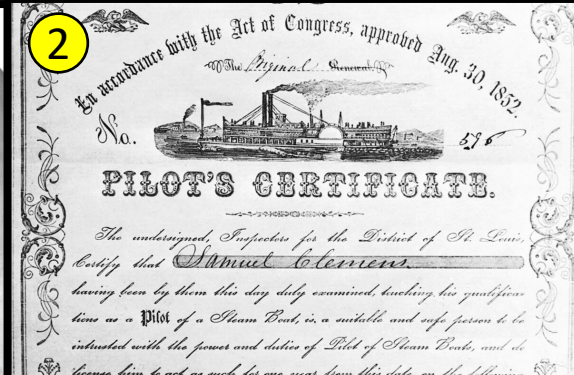 2
In accordance with the Act of Congress, approved Aug. 30, 1852.
The Original Renewal
No. 596
PILOT'S CERTIFICATE.
The undersigned, Inspectors for the District of St. Louis,
Certify that Samuel Clemens
having been by them this day duly examined, touching his qualifica-
tions as a Pilot of a Steam Boat, is a suitable and safe person to be
intrusted with the power and duties of Pilot of Steam Boats, and do
license him to act as such for one year from this date, on the following